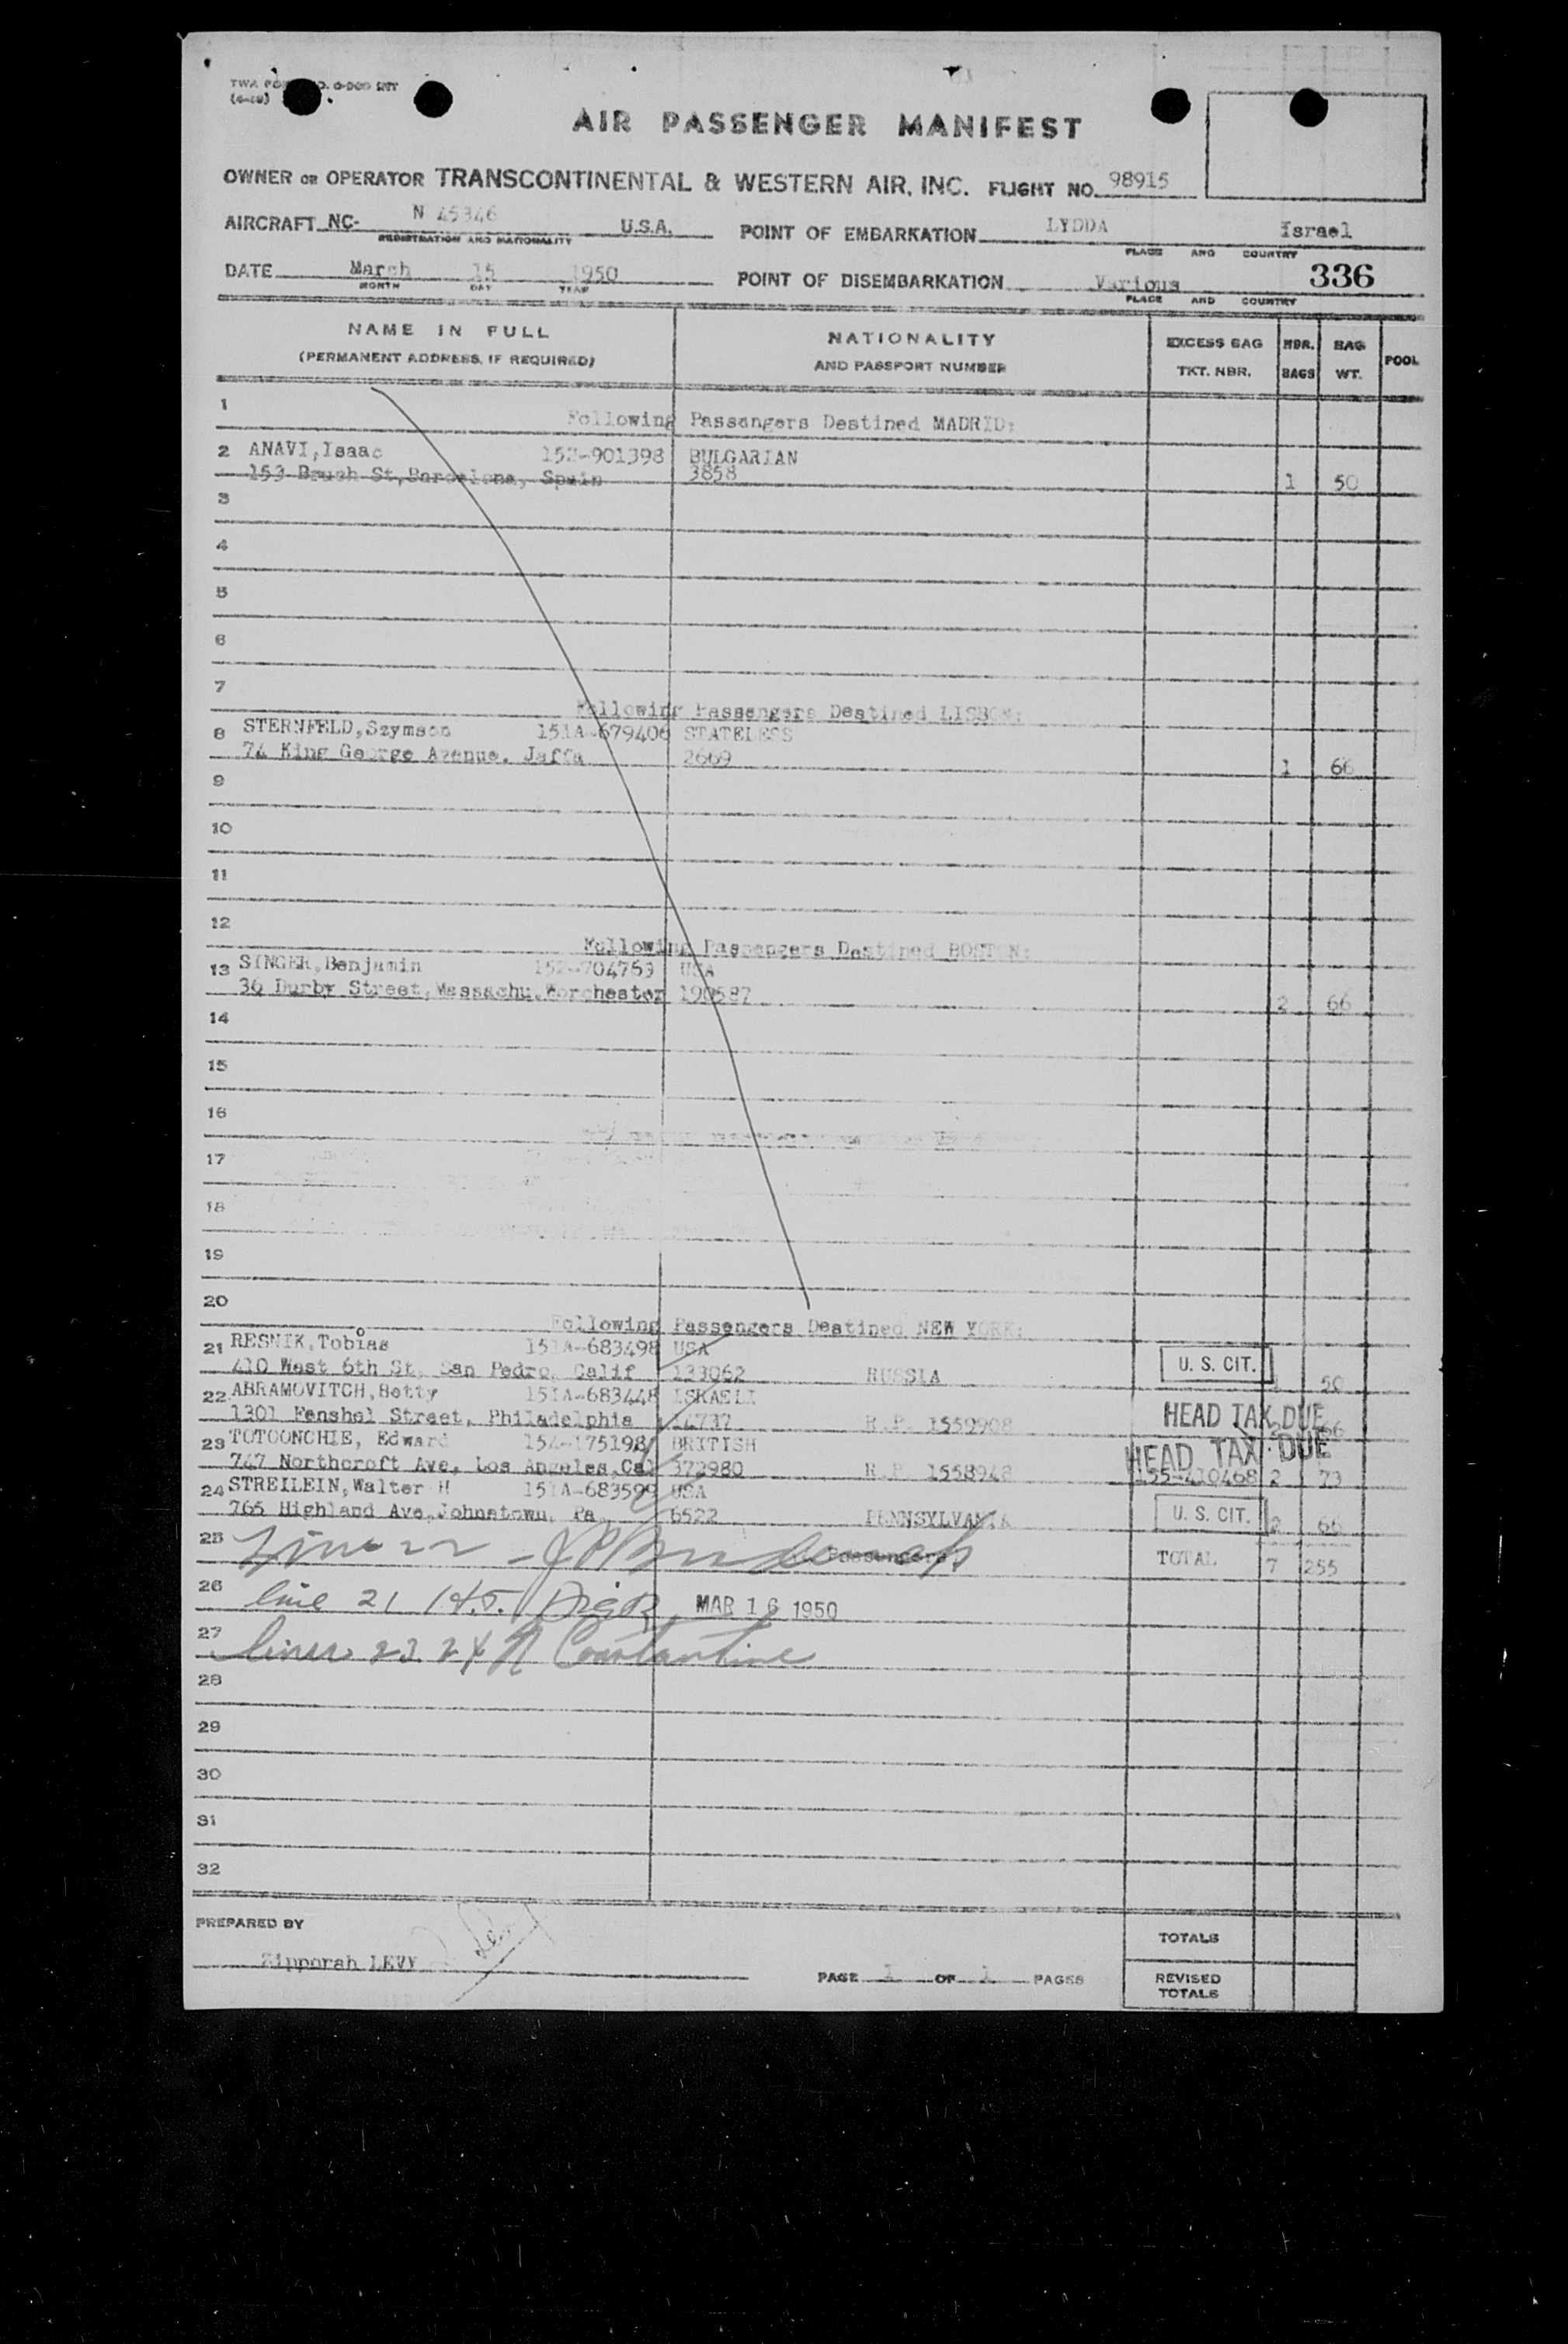 AIR PASSENGER MANIFEST
OWNER OR OPERATOR TRANSCONTINENTAL & WESTERN AIR, INC. FLIGHT NO. 98915
AIRCRAFT NC- N 45346 U.S.A. POINT OF EMBARKATION LYDDA Israel
REGISTRATION AND NATIONALITY PLACE AND COUNTRY
DATE March 15 1950 POINT OF DISEMBARKATION Various 336
MONTH DAY YEAR PLACE AND COUNTRY
NAME IN FULL NATIONALITY EXCESS BAG NBR. BAG POOL
(PERMANENT ADDRESS, IF REQUIRED) AND PASSPORT NUMBER TKT. NBR. BAGS WT.
1
Following Passengers Destined MADRID:
2 ANAVI,Isaac 152-901398 BULGARIAN
153 Bruch St,Barcelona, Spain 3858 1 50
3
4
5
6
7
Following Passengers Destined LISBON:
8 STERNFELD,Szymson 151A-679406 STATELESS
74 King George Avenue. Jaffa 2669 1 66
9
10
11
12
Following Passengers Destined BOSTON:
13 SINGER,Benjamin 152-704763 USA
36 Durby Street,Massachu.Worchester 190587 2 66
14
15
16
17
18
19
20
Following Passengers Destined NEW YORK:
21 RESNIK,Tobias 151A-683498 USA
410 West 6th St, San Pedro, Calif 133062 RUSSIA U. S. CIT. 50
22 ABRAMOVITCH,Betty 151A-683448 ISRAELI
1301 Fenshel Street, Philadelphia 14737 R.P. 1559908 HEAD TAX DUE 66
23 TOTOONCHIE, Edward 154-175198 BRITISH
747 Northcroft Ave, Los Angeles,Cal 372980 R.P. 1558948 HEAD TAX DUE
155-410468 2 73
24 STREILEIN,Walter H 151A-683599 USA
765 Highland Ave,Johnstown, Pa. 6522 PENNSYLVANIA U. S. CIT. 2 66
25 Passengers TOTAL 7 255
26 line 21 MAR 16 1950
27 lines 23. 24 Constantine
28
29
30
31
32
PREPARED BY
Zipporah LEVY
TOTALS
PAGE 1 OF 1 PAGES
REVISED
TOTALS